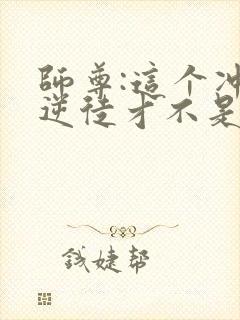 師尊:這个冲
逆徒才不是
錢婕幫